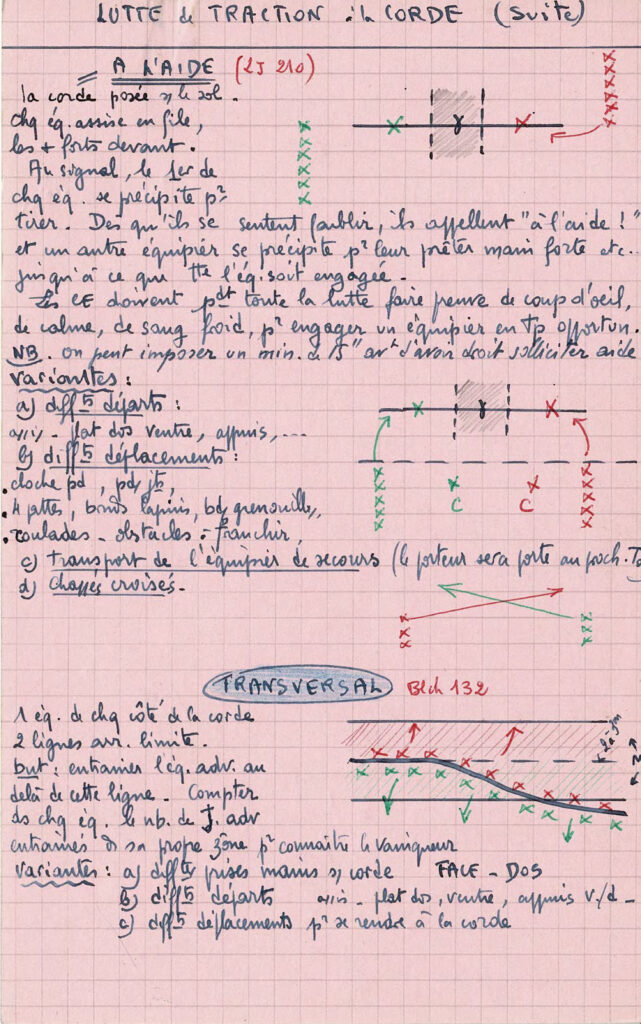 LUTTE de TRACTION à la CORDE (Suite)
A L'AIDE (LJ 210)
la corde posée s/ le sol.
chq éq. assise en file,
les + forts devant.
Au signal, le 1er de
chq éq. se précipite pr
tirer. Dès qu'ils se sentent faiblir, ils appellent "à l'aide !"
et un autre équipier se précipite pr leur prêter main forte etc..
jusqu'à ce que tte l'éq. soit engagée.
Les CE doivent pdt toute la lutte faire preuve de coup d'oeil,
de calme, de sang froid, pr engager un équipier en Tp opportun.
NB. on peut imposer un min. de 15" avt d'avoir droit solliciter aide
Variantes :
a) difftS départs :
assis - plat dos ventre, appuis, ....
b) difftS déplacements :
C C
. cloche pd, pds jts,
. 4 pattes, bonds lapins, bds grenouilles,
. roulades - obstacles à franchir,
c) transport de l'équipier de secours (le porteur sera porté au proch. T
d) Chassés croisés.
TRANSVERSAL Blch 132
1 éq. de chq côté de la corde
2 lignes arr. limite.
but : entraîner l'éq. adv. au
delà de cette ligne. Compter
ds chq éq. le nb. de J. adv
entraînés ds sa propre zône pr connaître le vainqueur
Variantes : a) difftS prises mains s/ corde FACE - DOS
b) difftS départs assis - plat dos, ventre, appuis v./d -
c) difftS déplacements pr se rendre à la corde